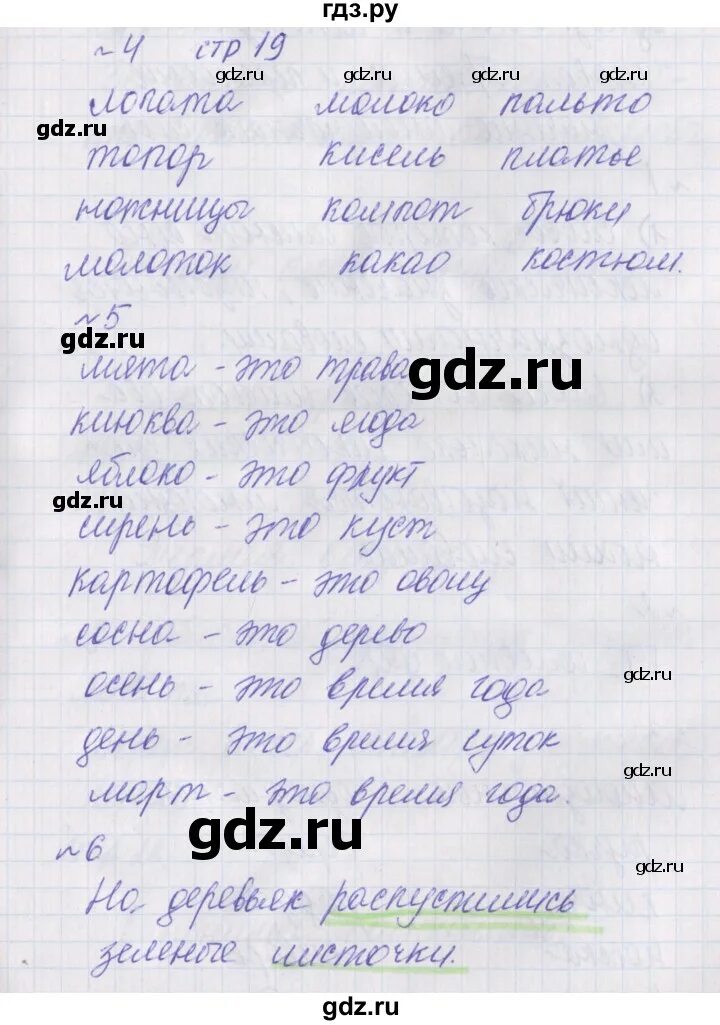 гдз.ру
№4 стр 19
gdz.ru gdz.ru gdz.ru
лопата молоко пальто
gdz.ru
топор кисель платье
ножницы компот брюки
молоток какао костюм.
№5
gdz.ru gdz.ru
мята - это трава
gdz.ru
клюква - это ягода
яблоко - это фрукт
gdz.ru
сирень - это куст
картофель - это овощ
сосна - это дерево
gdz.ru
осень - это время года
день - это время суток
gdz.ru
март - это время года.
gdz.ru
№6
gdz.ru
На деревьях распустились
зеленые листочки.
gdz.ru